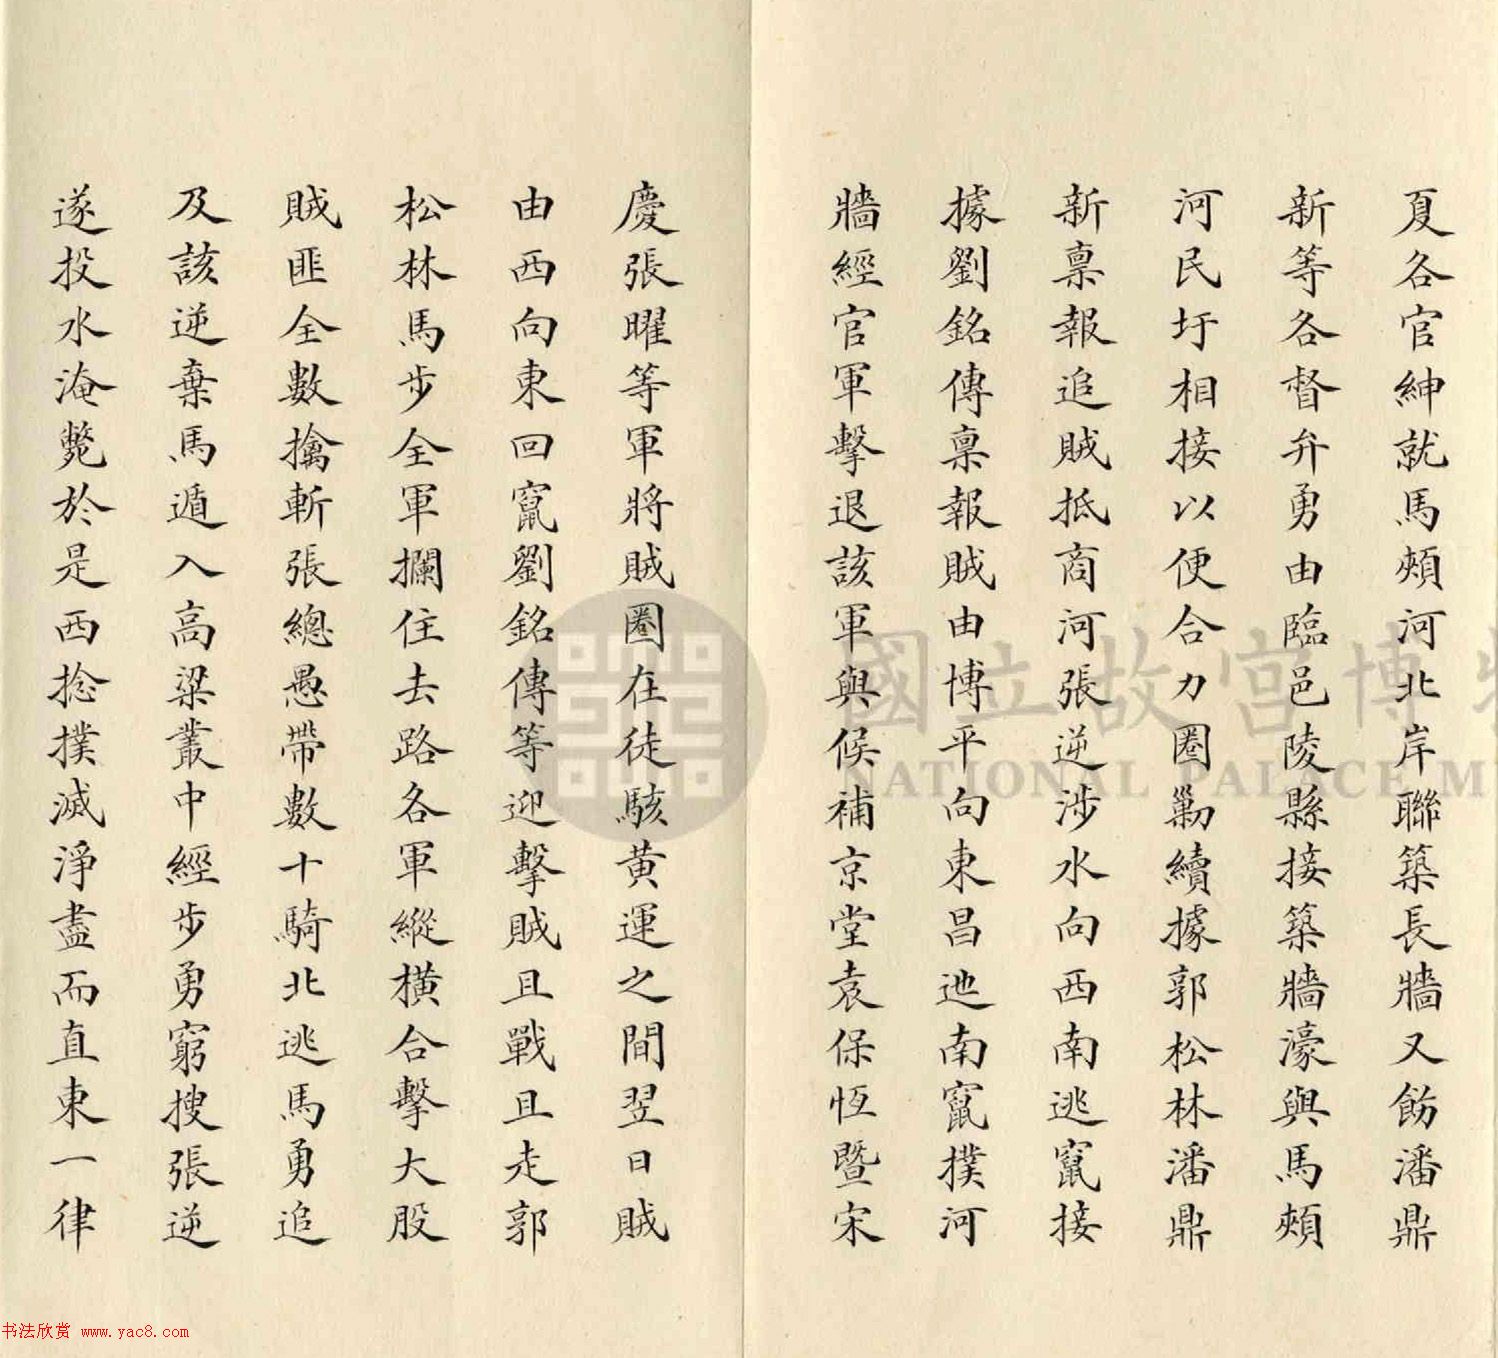 夏各官紳就馬頰河北岸聯築長牆又飭潘鼎
新等各督弁勇由臨邑陵縣接築牆濠與馬頰
河民圩相接以便合力圈勦續據郭松林潘鼎
新稟報追賊抵商河張逆涉水向西南逃竄接
據劉銘傳稟報賊由博平向東昌迆南竄撲河
牆經官軍擊退該軍與候補京堂袁保恆暨宋
慶張曜等軍將賊圈在徒駭黃運之間翌日賊
由西向東回竄劉銘傳等迎擊賊且戰且走郭
松林馬步全軍攔住去路各軍縱橫合擊大股
賊匪全數擒斬張總愚帶數十騎北逃馬勇追
及該逆棄馬遁入高粱叢中經步勇窮搜張逆
遂投水淹斃於是西捻撲滅淨盡而直東一律
國立故宮博物
NATIONAL PALACE M
书法欣赏 www.yac8.com